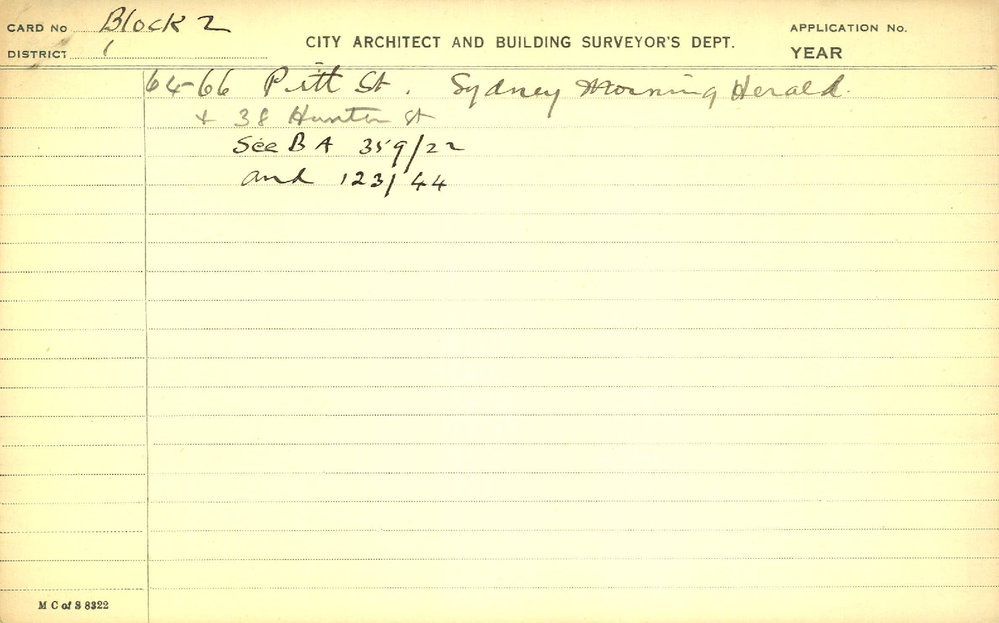 CARD No Block 2
DISTRICT 1
CITY ARCHITECT AND BUILDING SURVEYOR'S DEPT.
APPLICATION No.
YEAR
64-66 Pitt St. Sydney Morning Herald.
+ 38 Hunter St
See B A 359/22
and 123/44
M C of S 8322